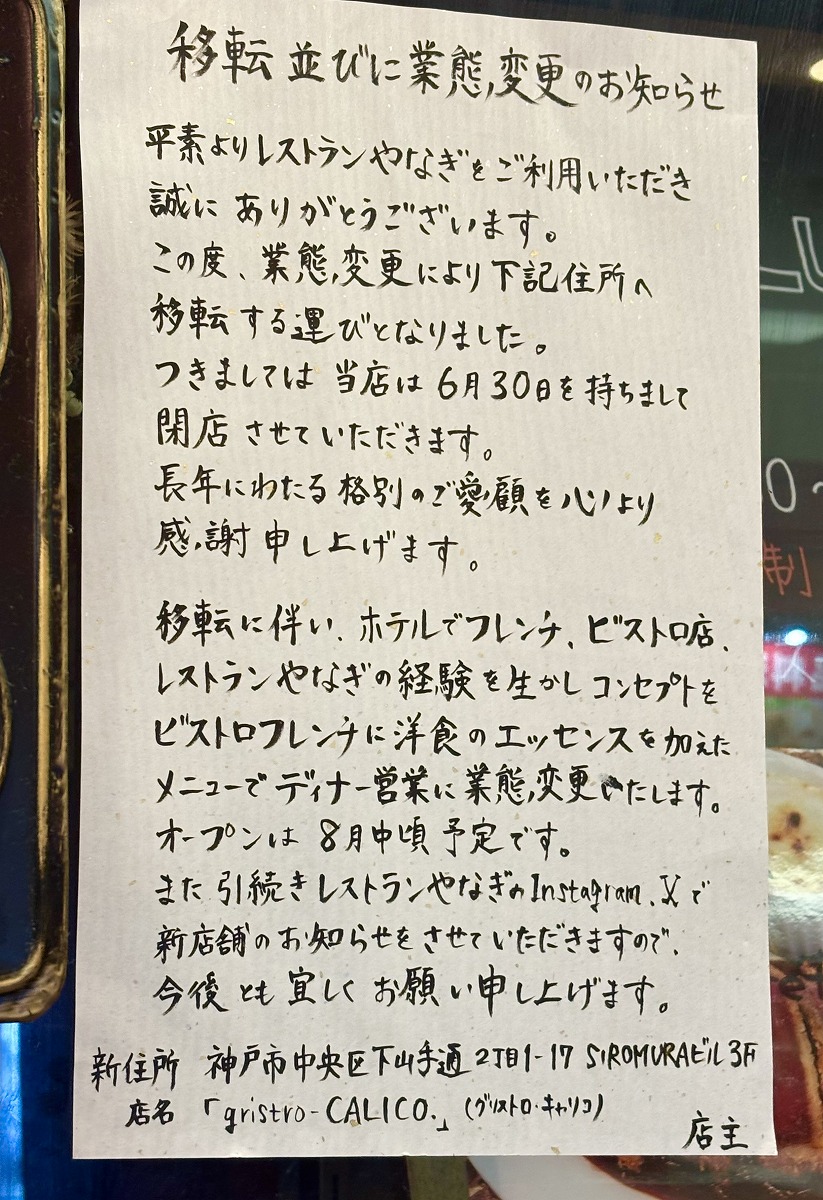 移転並びに業態変更のお知らせ
平素よりレストランやなぎをご利用いただき
誠にありがとうございます。
この度、業態変更により下記住所へ
移転する運びとなりました。
つきましては当店は6月30日を持ちまして
閉店させていただきます。
長年にわたる格別のご愛顧を心より
感謝申し上げます。
移転に伴い、ホテルでフレンチ、ビストロ店、
レストランやなぎの経験を生かしコンセプトを
ビストロフレンチに洋食のエッセンスを加えた
メニューでディナー営業に業態変更いたします。
オープンは8月中頃予定です。
また引続きレストランやなぎのInstagram、Xで
新店舗のお知らせをさせていただきますので、
今後とも宜しくお願い申し上げます。
新住所 神戸市中央区下山手通2丁目1-17 SIROMURAビル3F
店名 「gristro-CALICO.」(グリストロ・キャリコ)
店主
制